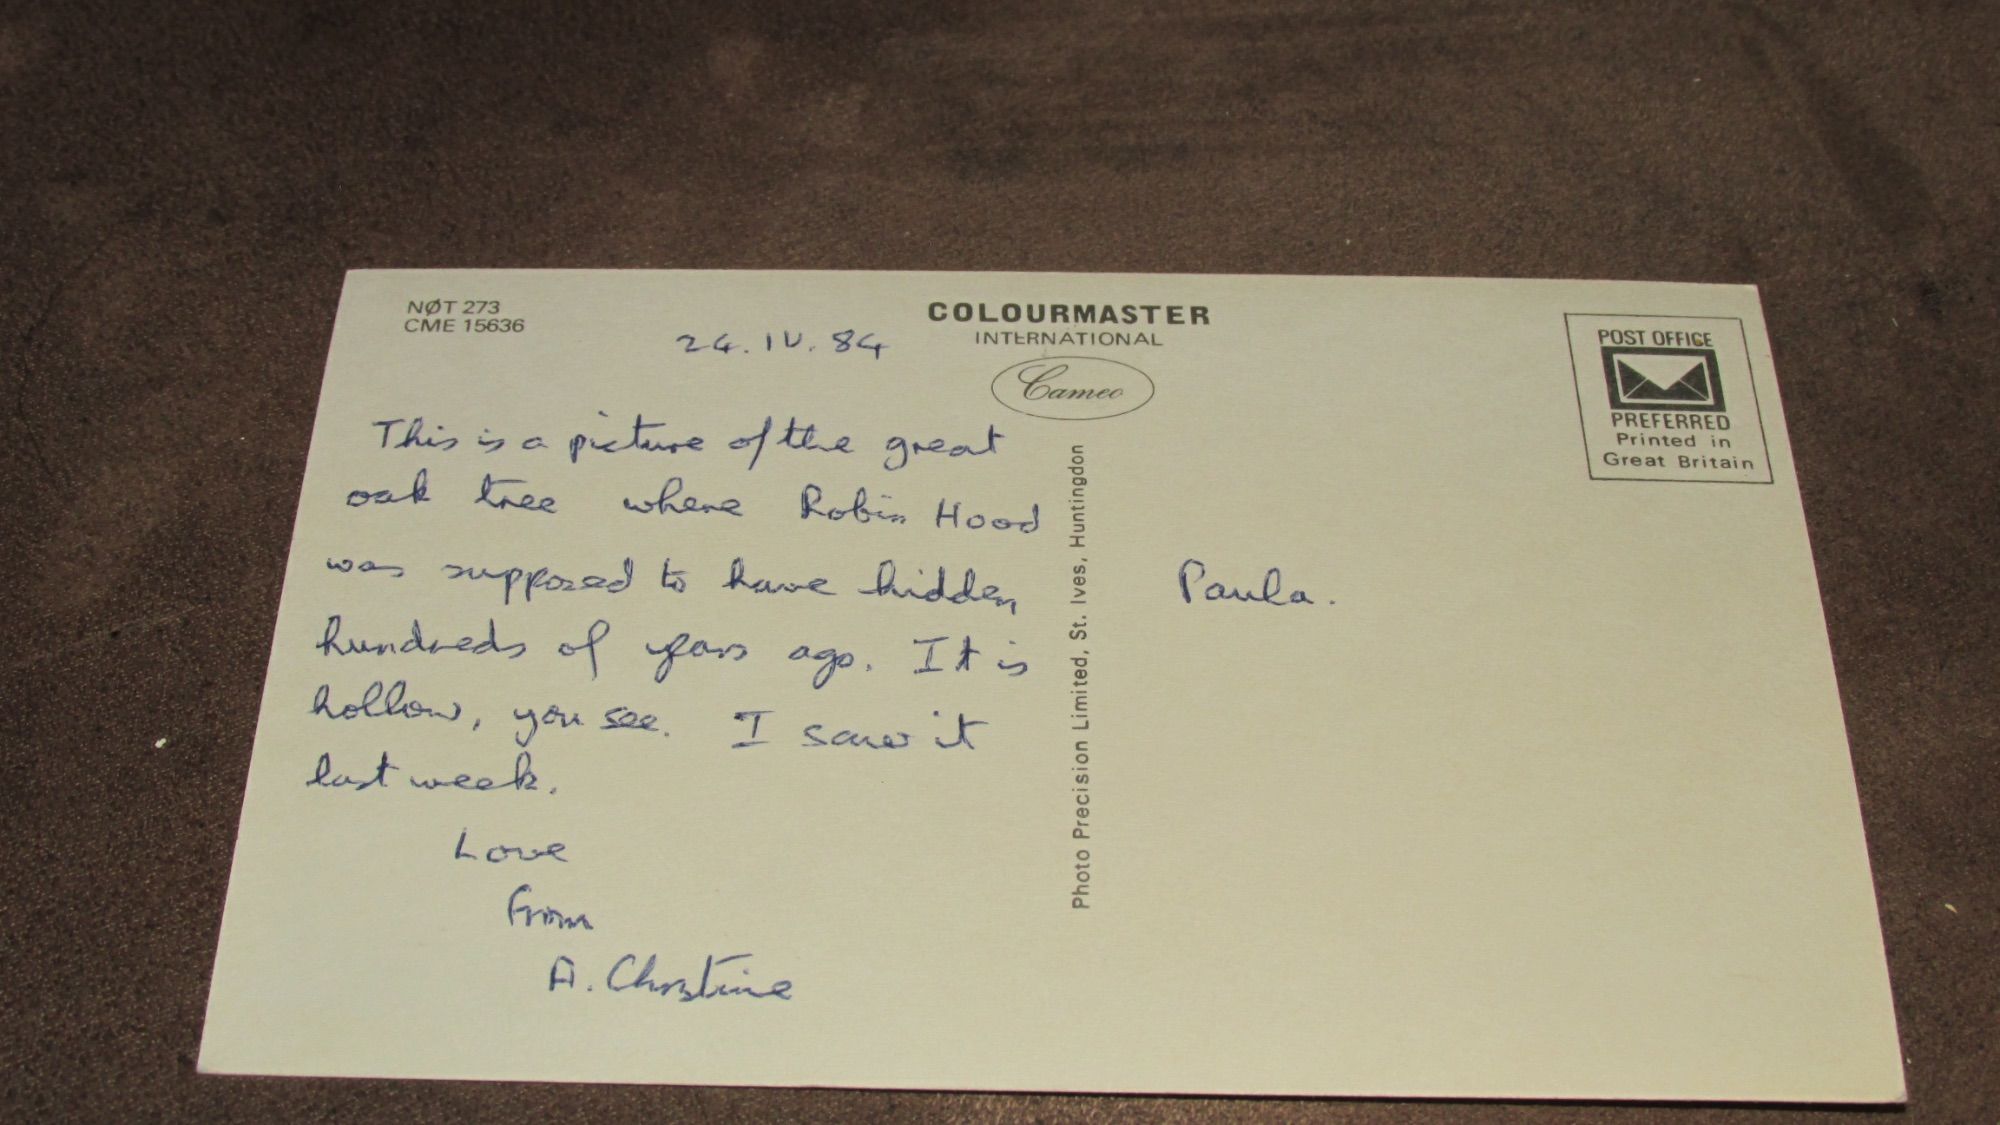 NØT 273
CME 15636
24.IV.84
COLOURMASTER
INTERNATIONAL
Cameo
This is a picture of the great
oak tree where Robin Hood
was supposed to have hidden,
hundreds of years ago. It is
hollow, you see. I saw it
last week.
Love
from
A. Christine
Photo Precision Limited, St. Ives, Huntingdon
Paula.
POST OFFICE
PREFERRED
Printed in
Great Britain